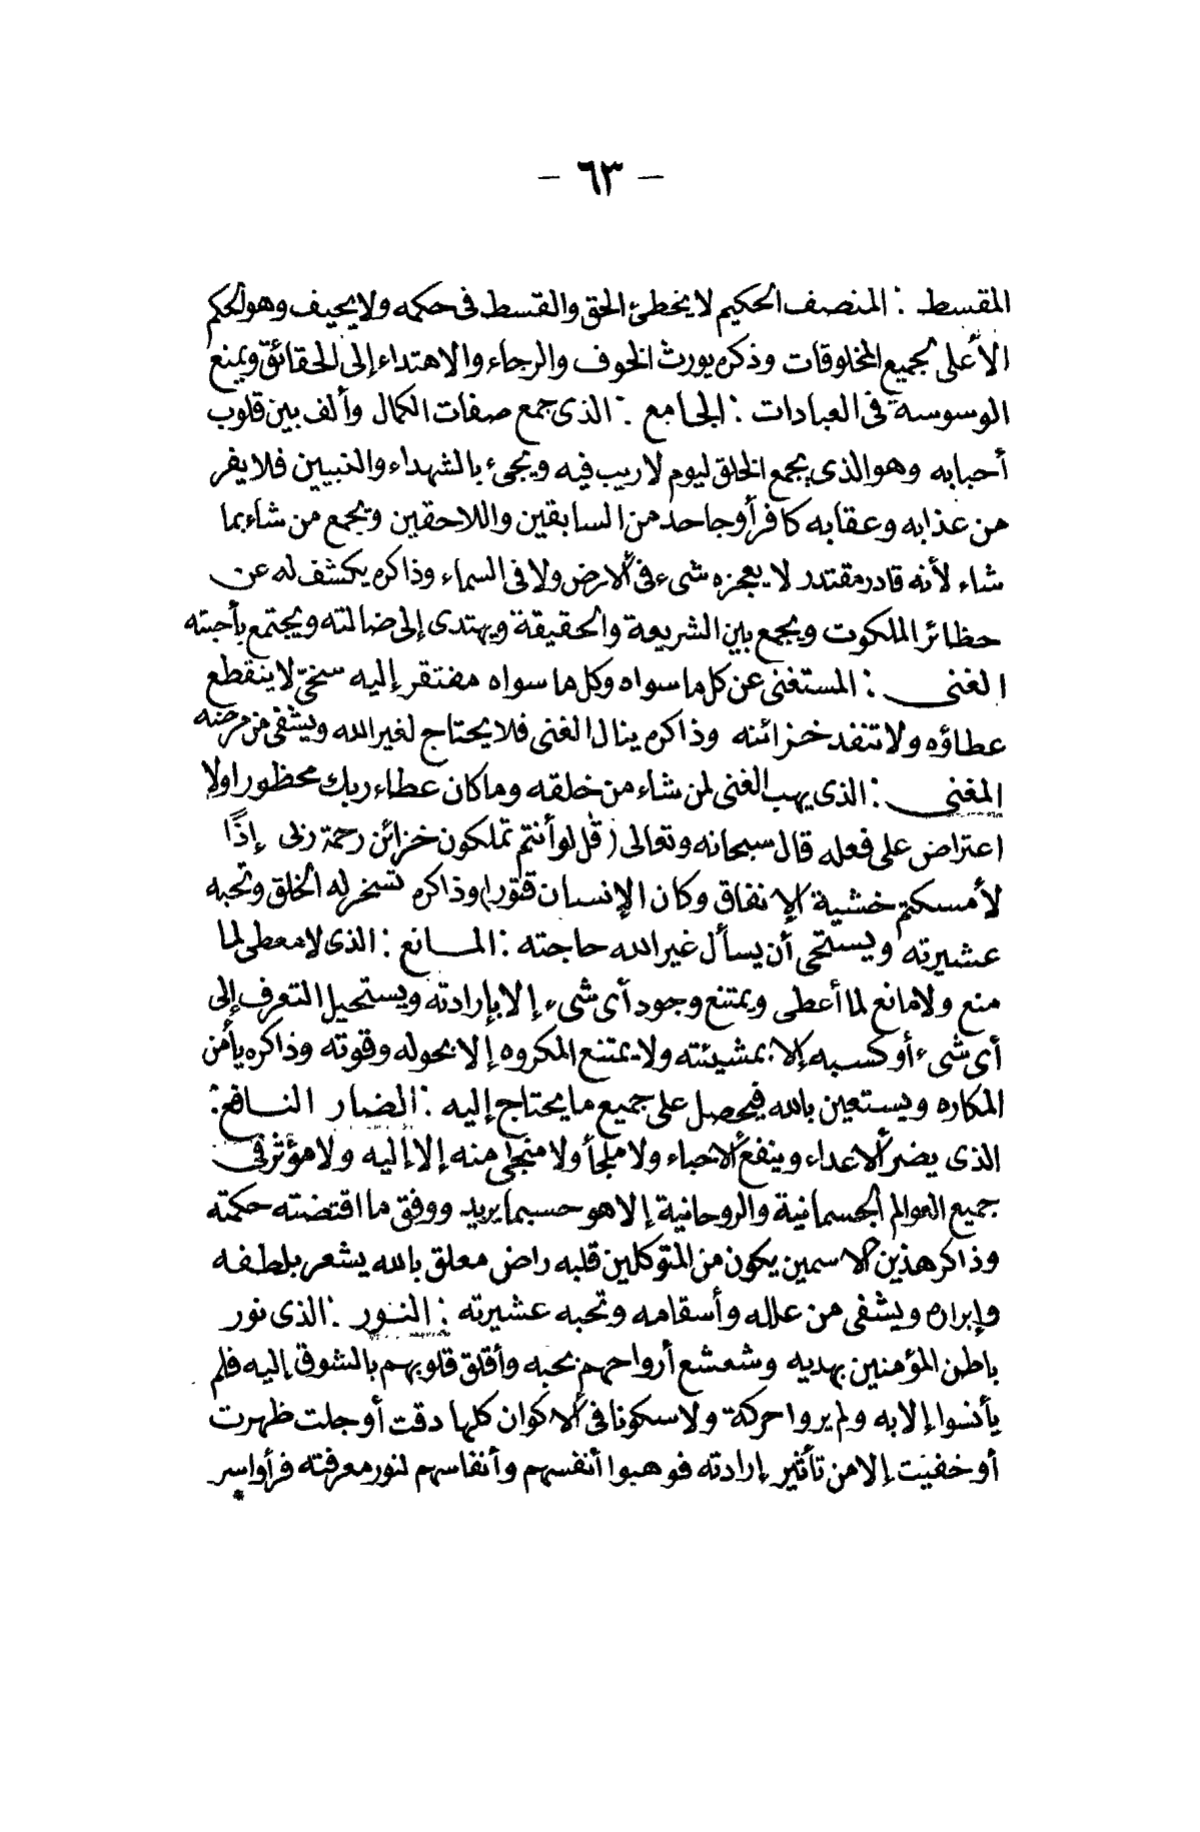 - ٦٣ -
المقسط : المنصف الحكيم لا يخطئ الحق والقسط فى حكمه ولا يحيف وهو الحكم
الأعلى لجميع المخلوقات وذكره يورث الخوف والرجاء والاهتداء إلى الحقائق ويمنع
الوسوسة فى العبادات : الجامع : الذى جمع صفات الكمال وألف بين قلوب
أحبابه وهو الذى يجمع الخلق ليوم لا ريب فيه ويجىء بالشهداء والنبيين فلا يفر
من عذابه وعقابه كافرأوجاحد من السابقين واللاحقين ويجمع من شاء بما
شاء لأنه قادر مقتدر لا يعجزه شىء فى الأرض ولا فى السماء وذاكره يكشف له عن
حظائر الملكوت ويجمع بين الشريعة والحقيقة ويهتدى إلى ضالته ويجتمع بأحبته
الغنى : المستغنى عن كل ما سواه وكل ما سواه مفتقر إليه سخىّ لا ينقطع
عطاؤه ولا تنفد خزائنه وذاكره ينال الغنى فلا يحتاج لغير الله ويشفى من مرضه
المغنى : الذى يهب الغنى لمن شاء من خلقه وما كان عطاء ربك محظورا ولا
اعتراض على فعله قال سبحانه وتعالى ( قل لو أنتم تملكون خزائن رحمة ربى إذًا
لأمسكتم خشية الإنفاق وكان الإنسان قتورا) وذاكره تسخر له الخلق وتحبه
عشيرته ويستحى أن يسأل غير الله حاجته : المانع : الذى لا معطى لما
منع ولا مانع لما أعطى ويمتنع وجود أى شىء إلا بإرادته ويستحيل التعرف إلى
أى شىء أو كسبه إلا بمشيئته ولا يمتنع المكروه إلا بحوله وقوته وذاكره يأمن
المكاره ويستعين بالله فيحصل على جميع ما يحتاج إليه : الضار النافع :
الذى يضر الأعداء وينفع الأحباء ولا ملجأ ولا منجى منه إلا إليه ولا مؤثر فى
جميع العوالم الجسمانية والروحانية إلا هو حسبما يريد ووفق ما اقتضته حكمته
وذاكر هذين الاسمين يكون من المتوكلين قلبه راض معلق بالله يشعر بلطفه
وإبراره ويشفى من علله وأسقامه وتحبه عشيرته : النور : الذى نور
باطن المؤمنين بهديه وشعشع أرواحهم بحبه وأقلق قلوبهم بالشوق إليه فلم
يأنسوا إلا به ولم يروا حركة ولا سكونا فى الأكوان كلها دقت أو جلت ظهرت
أو خفيت إلا من تأثير إرادته فوهبوا أنفسهم وأنفاسهم لنور معرفته فرأوا سر
*